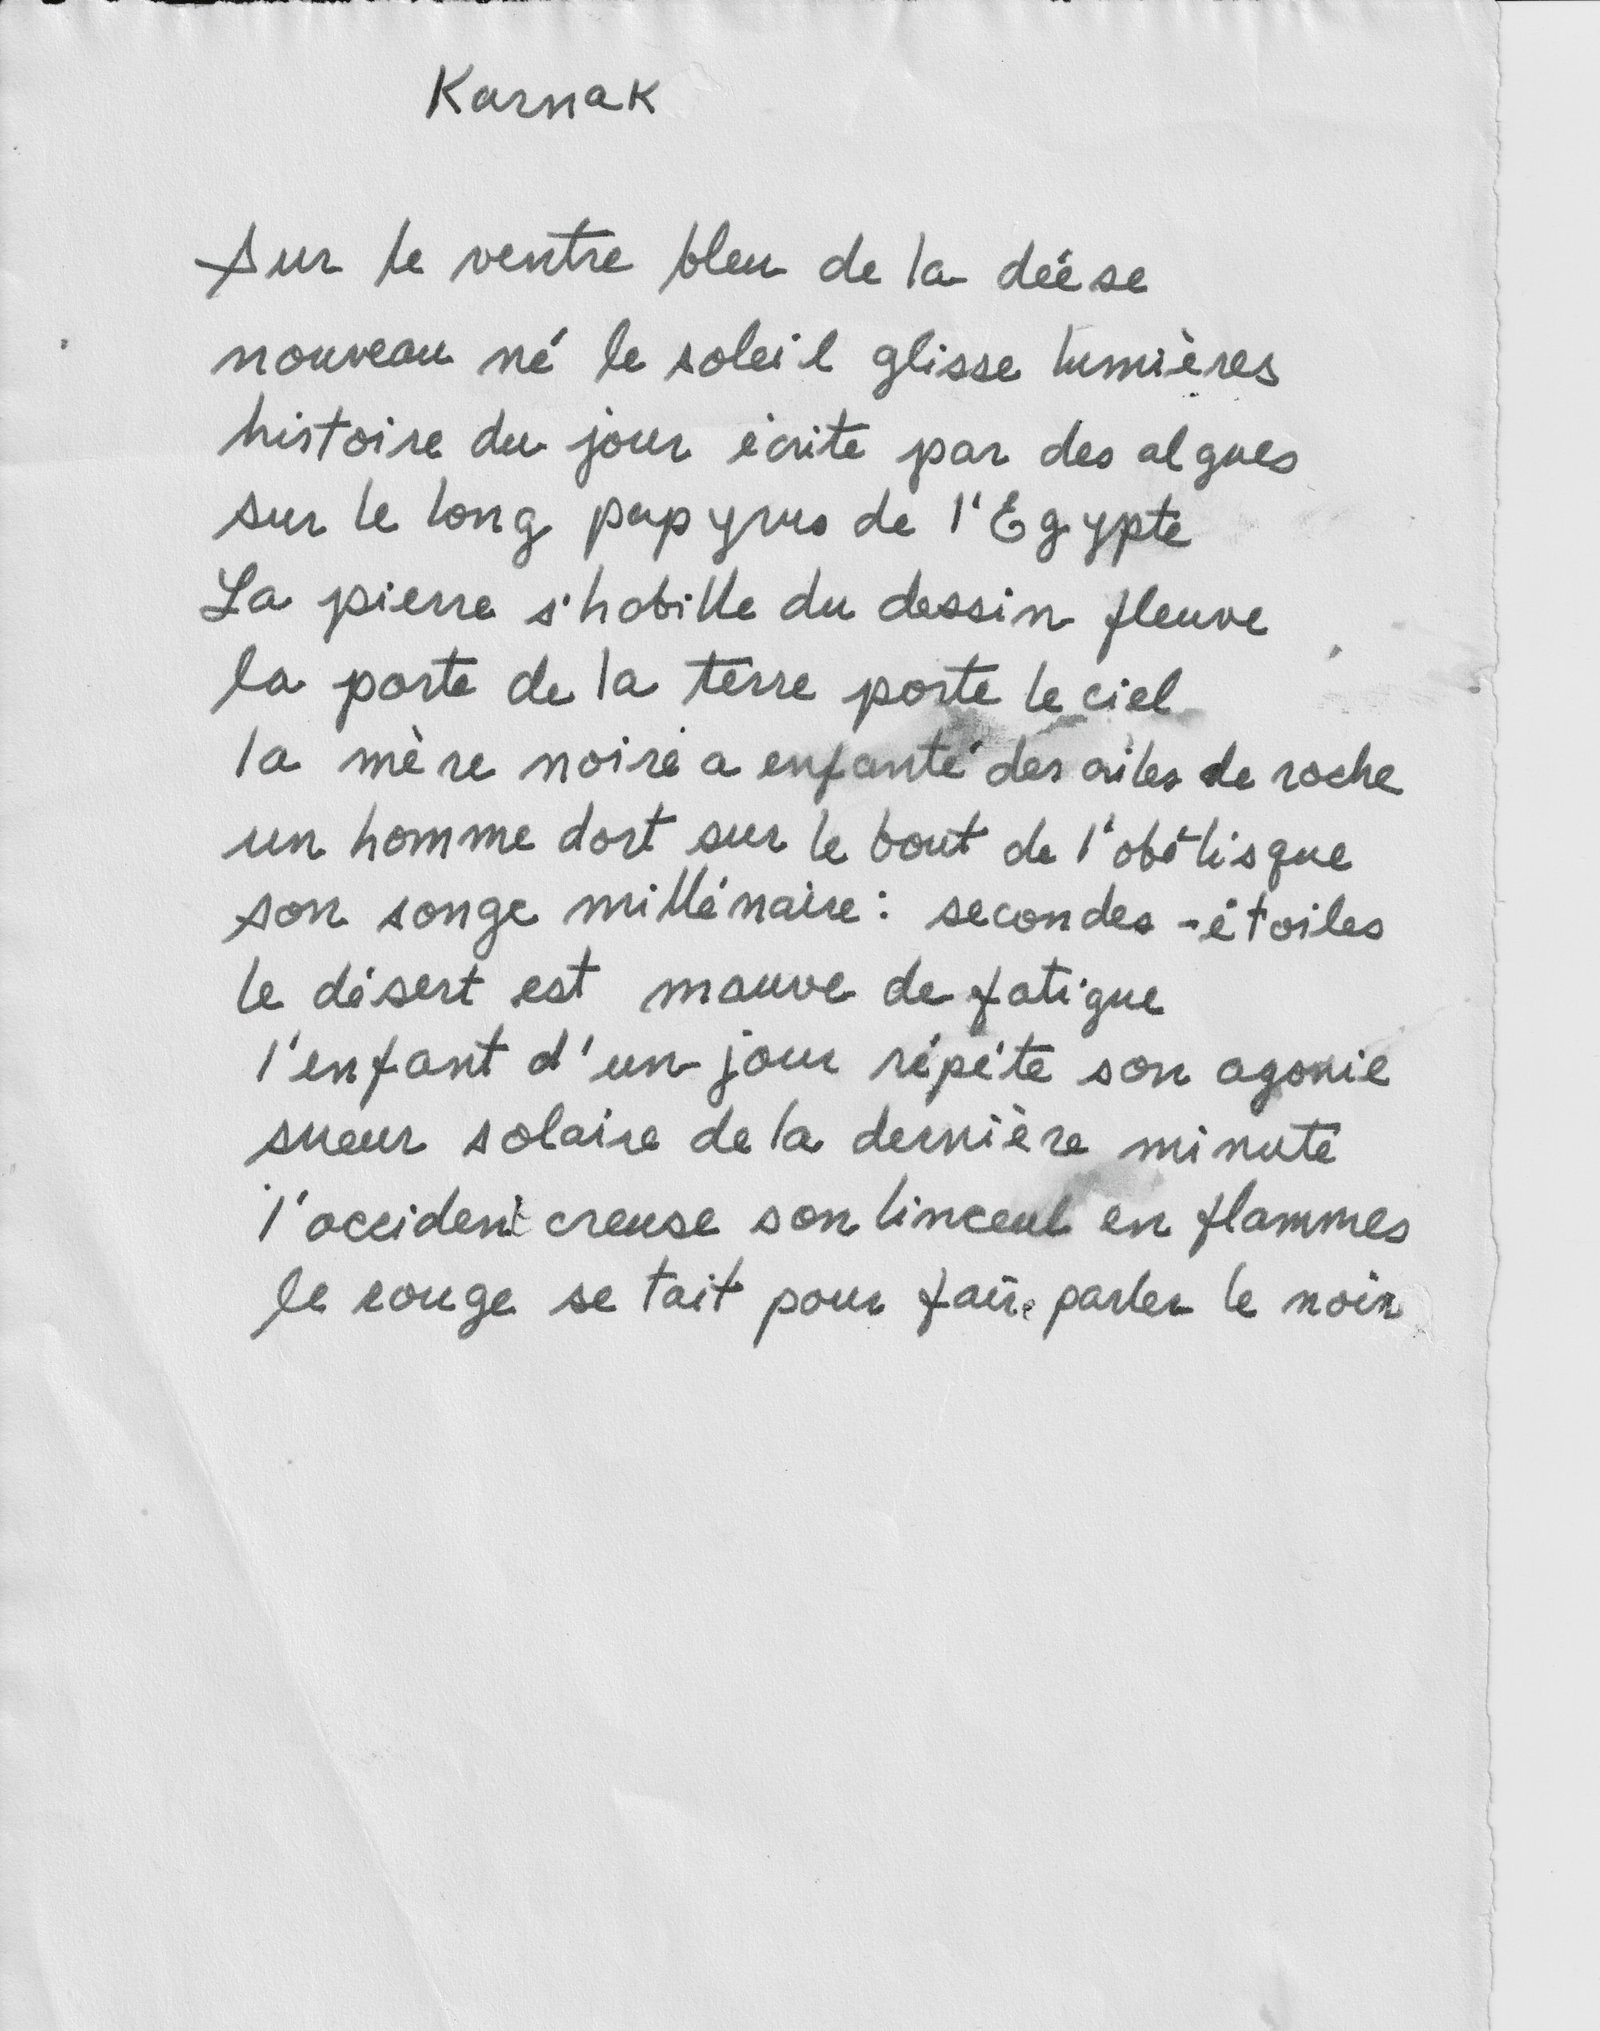 Karnak
Sur le ventre bleu de la déése
nouveau né le soleil glisse lumières
histoire du jour écrite par des algues
sur le long papyrus de l'Egypte
La pierre s'habille du dessin fleuve
la porte de la terre porte le ciel
la mère noire a enfanté des ailes de roche
un homme dort sur le bout de l'obélisque
son songe millénaire : secondes-étoiles
le désert est mauve de fatigue
l'enfant d'un jour répéte son agonie
sueur solaire de la dernière minute
l'occident creuse son linceul en flammes
le rouge se tait pour faire parler le noir